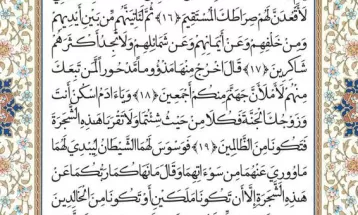 لَأَقْعُدَنَّ لَهُمْ صِرَاطَكَ الْمُسْتَقِيمَ ﴿١٦﴾ ثُمَّ لَآتِيَنَّهُمْ مِنْ بَيْنِ أَيْدِيهِمْ
وَمِنْ خَلْفِهِمْ وَعَنْ أَيْمَانِهِمْ وَعَنْ شَمَائِلِهِمْ وَلَا تَجِدُ أَكْثَرَهُمْ
شَاكِرِينَ ﴿١٧﴾ قَالَ اخْرُجْ مِنْهَا مَذْءُومًا مَدْحُورًا لَمَنْ تَبِعَكَ
مِنْهُمْ لَأَمْلَأَنَّ جَهَنَّمَ مِنْكُمْ أَجْمَعِينَ ﴿١٨﴾ وَيَا آدَمُ اسْكُنْ أَنْتَ
وَزَوْجُكَ الْجَنَّةَ فَكُلَا مِنْ حَيْثُ شِئْتُمَا وَلَا تَقْرَبَا هَذِهِ الشَّجَرَةَ
فَتَكُونَا مِنَ الظَّالِمِينَ ﴿١٩﴾ فَوَسْوَسَ لَهُمَا الشَّيْطَانُ لِيُبْدِيَ لَهُمَا
مَا وُورِيَ عَنْهُمَا مِنْ سَوْآتِهِمَا وَقَالَ مَا نَهَاكُمَا رَبُّكُمَا عَنْ
هَذِهِ الشَّجَرَةِ إِلَّا أَنْ تَكُونَا مَلَكَيْنِ أَوْ تَكُونَا مِنَ الْخَالِدِينَ